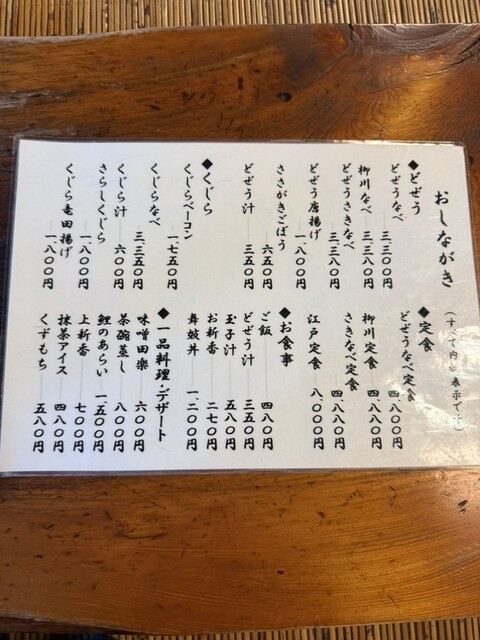 おしながき
（すべて内税表示です）
◆どぜう
どぜうなべ 三、三〇〇円
柳川なべ 三、三八〇円
どぜうさきなべ 三、三八〇円
どぜう唐揚げ 一、八〇〇円
ささがきごぼう 六五〇円
どぜう汁 三五〇円
◆くじら
くじらベーコン 一、七五〇円
くじらなべ 三、三五〇円
くじら汁 六〇〇円
さらしくじら 一、八〇〇円
くじら竜田揚げ 一、八〇〇円
◆定食
どぜうなべ定食 四、八〇〇円
柳川定食 四、八八〇円
さきなべ定食 四、八八〇円
江戸定食 八、〇〇〇円
◆お食事
ご飯 四八〇円
どぜう汁 三五〇円
玉子汁 五八〇円
お新香 二七〇円
舞妓丼 一、二〇〇円
◆一品料理・デザート
味噌田楽 六〇〇円
茶碗蒸し 八〇〇円
鯉のあらい 一、五〇〇円
上新香 七〇〇円
抹茶アイス 四八〇円
くずもち 五八〇円